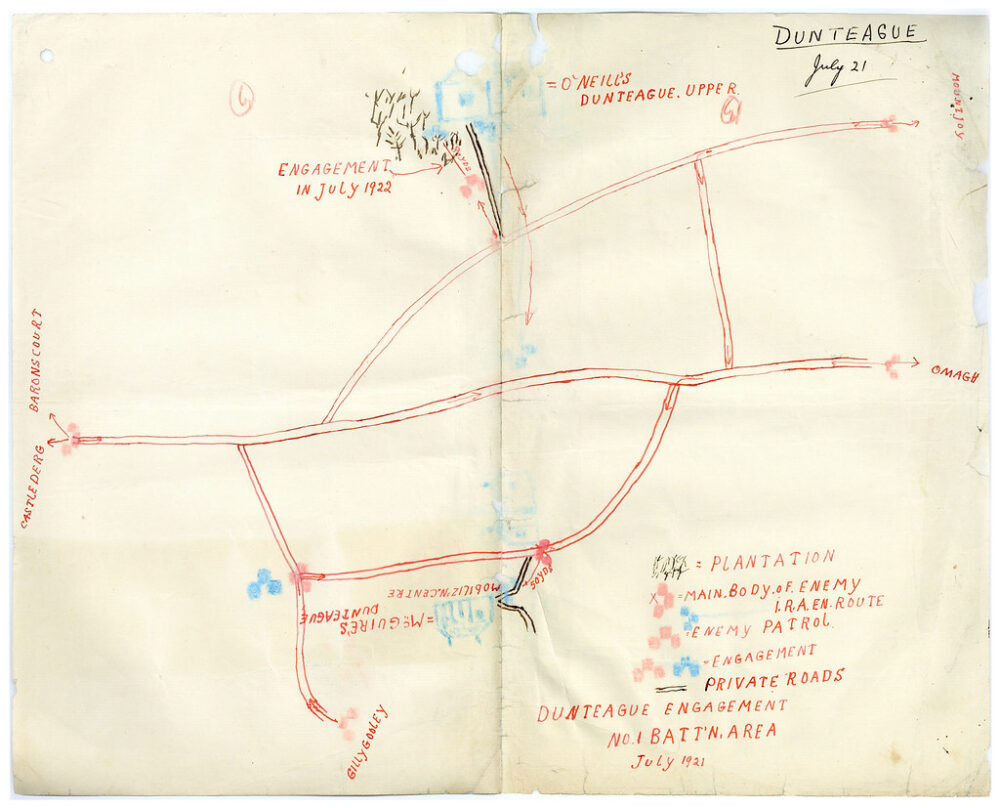 DUNTEAGUE
July 21
MOUNTJOY
= O'NEILL'S
DUNTEAGUE. UPPER
ENGAGEMENT
IN July 1922
BARONSCOURT
CASTLEDERG
OMAGH
50 YDS
MOBILIZ'N. CENTRE
= McGUIRE'S
DUNTEAGUE
GILLYGOOLEY
= PLANTATION
X = MAIN. BODY. OF ENEMY
I.R.A. EN. ROUTE
= ENEMY PATROL.
= ENGAGEMENT
PRIVATE ROADS
DUNTEAGUE ENGAGEMENT
NO. 1 BATT'N. AREA
July 1921